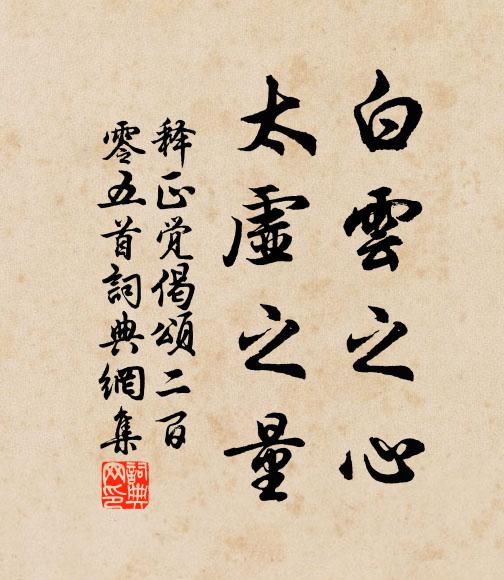 白雲之心
太虛之量
释正觉偈頌二百
零五首詞典網集
詞典网印